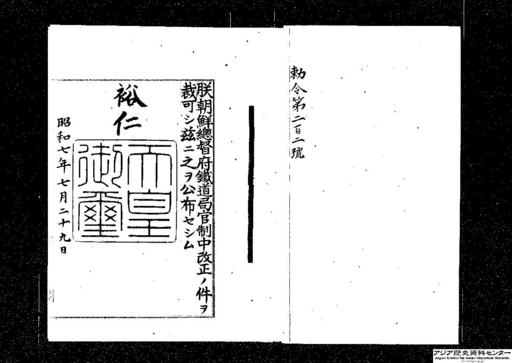 勅令第二百二號
朕朝鮮總督府鐵道局官制中改正ノ件ヲ
裁可シ茲ニ之ヲ公布セシム
裕仁
天皇
御璽
昭和七年七月二十九日
アジア歴史資料センター
Japan Center for Asian Historical Records